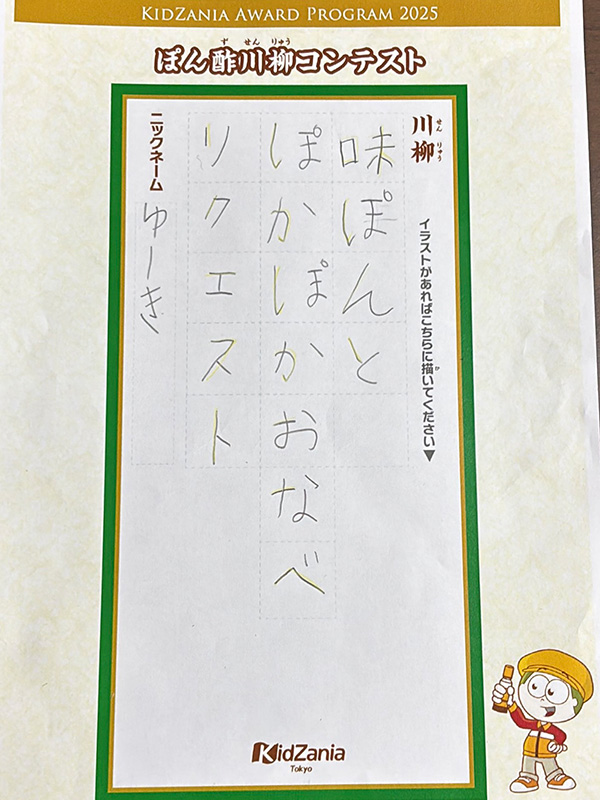 KIDZANIA AWARD PROGRAM 2025
ぽん酢川柳コンテスト
ず せん りゅう
川柳
せん りゅう
イラストがあればこちらに描いてください▼
か
味ぽんと
ぽかぽかおなべ
リクエスト
ニックネーム
ゆーき
KidZania
Tokyo